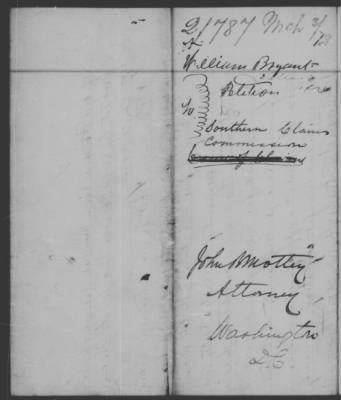 21787 Mch 3/73
William Bryant
Petition
to
Southern Claims
Commission
Attorney
Washington
D.C.